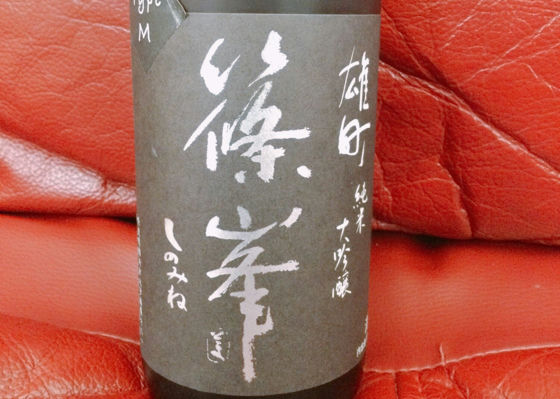 Type
M
雄町
純米大吟醸
篠峯
しのみね